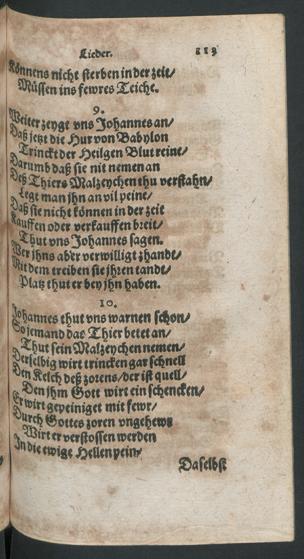 Lieder. 113
Könnens nicht sterben in der zeit/
Müssen ins fewres Teiche.
9.
Weiter zeygt vns Johannes an/
Daß jetzt die Hur von Babylon
Trinckt der Heilgen Blut reine/
Darumb daß sie nit nemen an
Deß Thiers Malzeychen thu verstahn/
Legt man jhn an vil peine/
Daß sie nicht können in der zeit
Kauffen oder verkauffen breit/
Thut vns Johannes sagen.
Wer jhns aber verwilligt zhandt/
Mit dem treiben sie jhren tandt/
Platz thut er bey jhn haben.
10.
Johannes thut vns warnen schon/
So jemand das Thier betet an/
Thut sein Malzeychen nemen/
Derselbig wirt trincken gar schnell
Den Kelch deß zorens/der ist quell/
Den jhm Gott wirt ein schencken/
Er wirt gepeiniget mit fewr/
Durch Gottes zoren vngehewr
Wirt er verstossen werden
In die ewige Hellen pein/
Daselbst